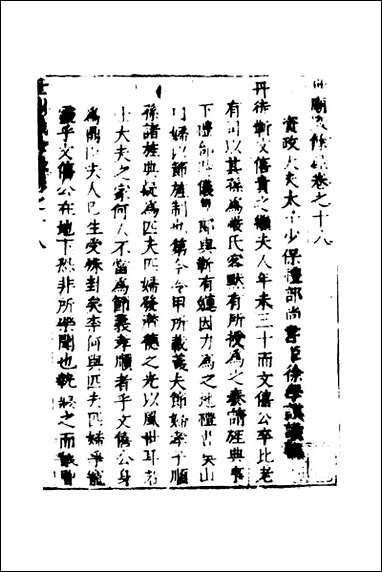 世廟識餘錄卷之十八
資政大夫太子少保禮部尚書臣徐學謨
丹徒靳文僖貴之繼夫人年未三十而文僖公卒比老
有司以其孫為嚴氏客默有所授為之奏請旌典事
下禮部儀郎與靳有因力為之地禮書吳山
曰婦以節旌制也第令甲所載義夫節婦孝子順
孫諸旌典為匹夫匹婦發潛德之光以風世耳若
士大夫之家何人不當為節義孝順者乎文僖公身
為鼎臣夫人已生受殊封矣奈何與匹夫匹婦爭寵
靈乎文僖公在地下恐非所樂聞也執之而嚴嵩